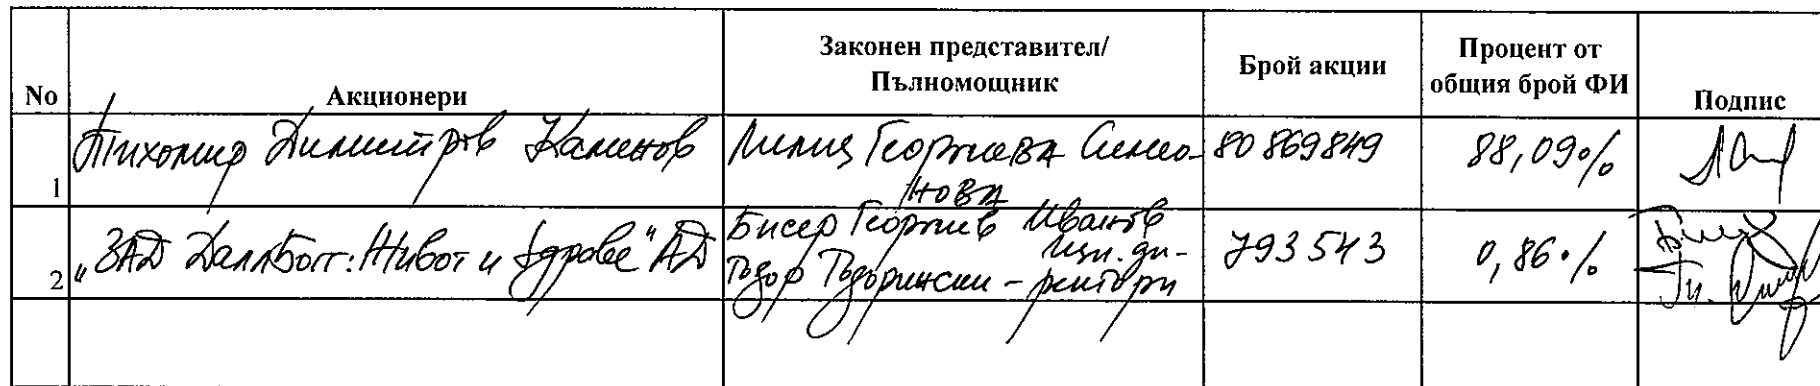 No Акционери Законен представител/ Пълномощник Брой акции Процент от общия брой ФИ Подпис
1 Тихомир Димитров Каменов Лилия Георгиева Симео- 80869849 88,09%
нова
2 "ЗАД ДаллБогг: Живот и Здраве" АД Бисер Георгиев Иванов 793543 0,86%
Изп. ди-
Тодор Тодорински - ректори